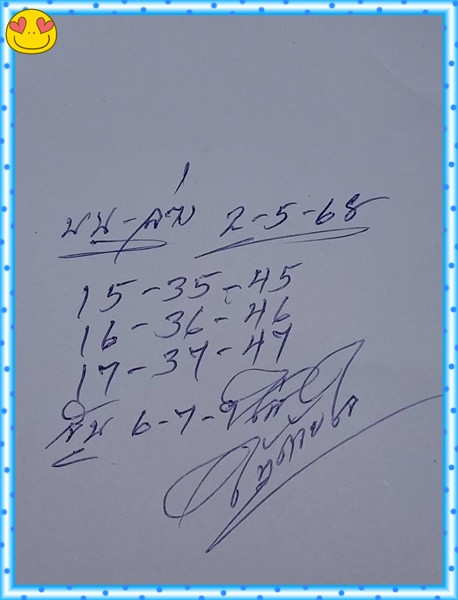 บน-ล่าง 2-5-68
15-35-45
16-36-46
17-37-47
6-7-